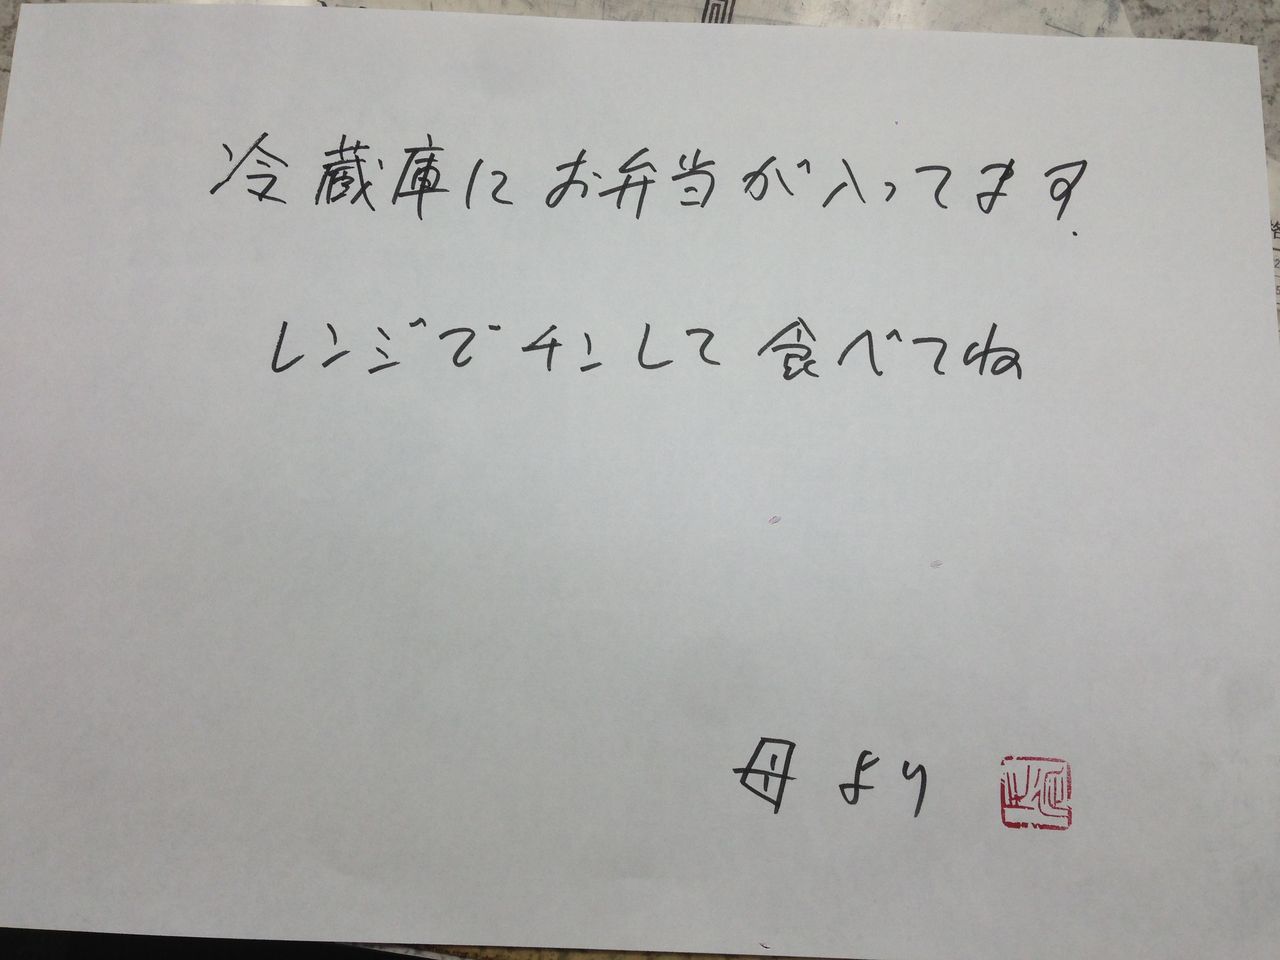 冷蔵庫にお弁当が入ってます.
レンジでチンして食べてね
母より